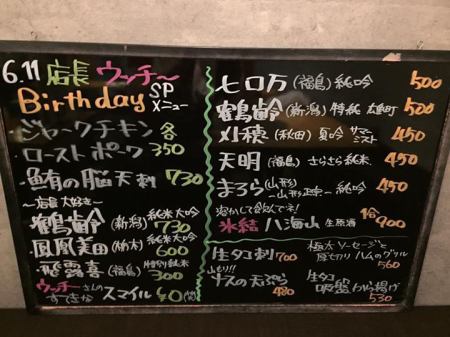 6.11 店長 ウッチ〜
Birthday SPメニュー
・ジャークチキン 各
・ローストポーク 350
・鮪の脳天刺 730
〜店長大好き〜
鶴齢 (新潟) 純米大吟 730
鳳凰美田 (栃木) 純米大吟 600
飛露喜 (福島) 特別純米 300
ウッチーさんの
すてきな スマイル ¥0
七ロ万 (福島) 純吟 500
鶴齢 (新潟) 特純 雄町 500
刈穂 (秋田) 夏吟 サマーミスト 450
天明 (福島) さらさら純米 450
まろら (山形) 〜山形正宗〜 純吟 450
溶かして飲んでネ!
氷結 八海山 生原酒 1合 900
生タコ刺 700
極太ソーセージと
厚切りハムのグリル 560
山もり!!
ナスの天ぷら 480
生タコ
吸盤から揚げ 530